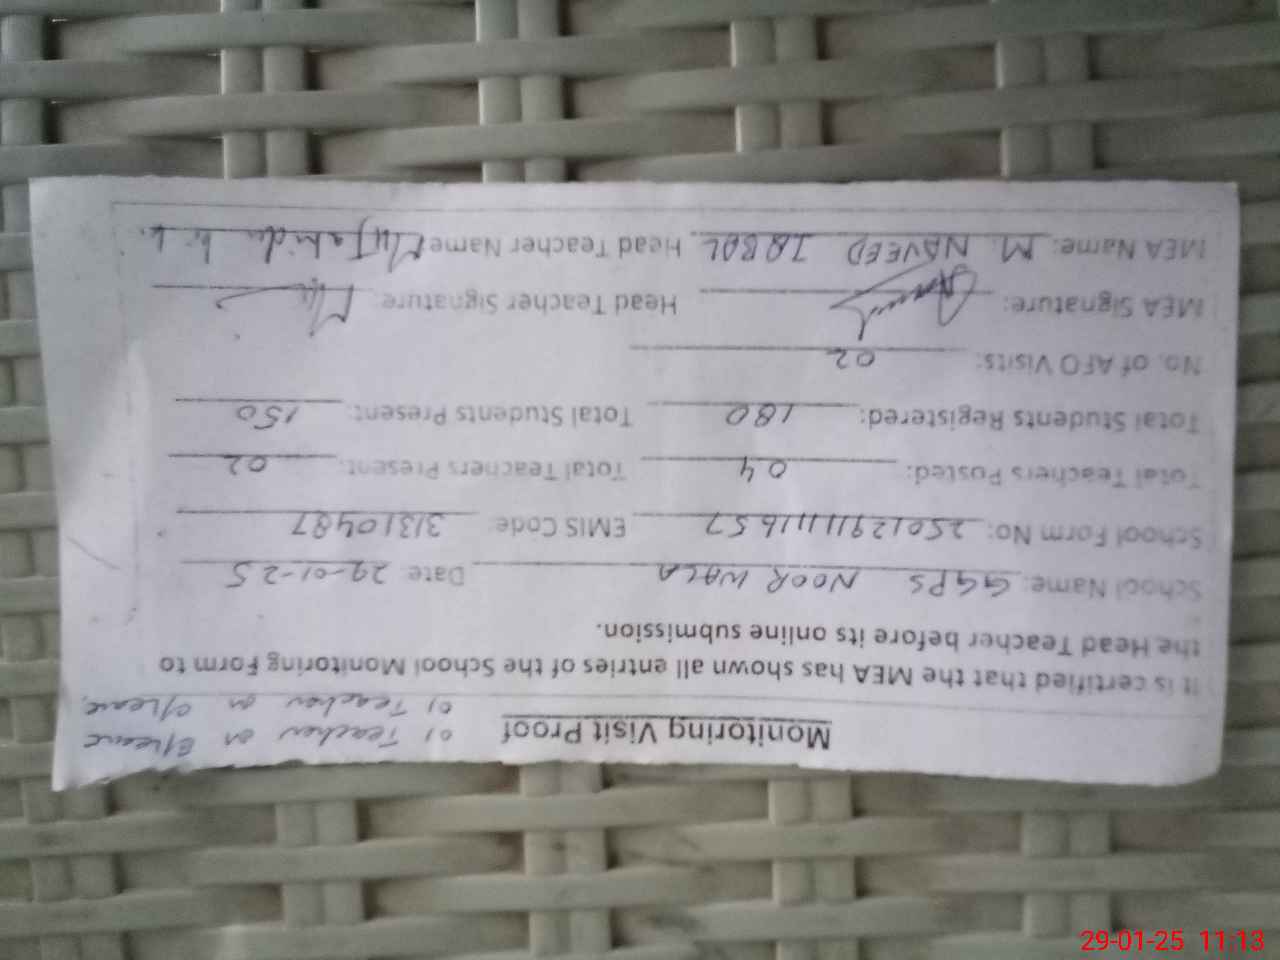 Monitoring Visit Proof
01 Teacher on E/leave
01 Teacher on c/leave.
It is certified that the MEA has shown all entries of the School Monitoring Form to
the Head Teacher before its online submission.
School Name: GGPS NOOR WALA Date: 29-01-25
School Form No: EMIS Code: 31310487
Total Teachers Posted: 04 Total Teachers Present: 02
Total Students Registered: 180 Total Students Present: 150
No. of AFO Visits: 02
MEA Signature: Head Teacher Signature:
MEA Name: M. NAVEED IQBAL Head Teacher Name:
29-01-25 11:13